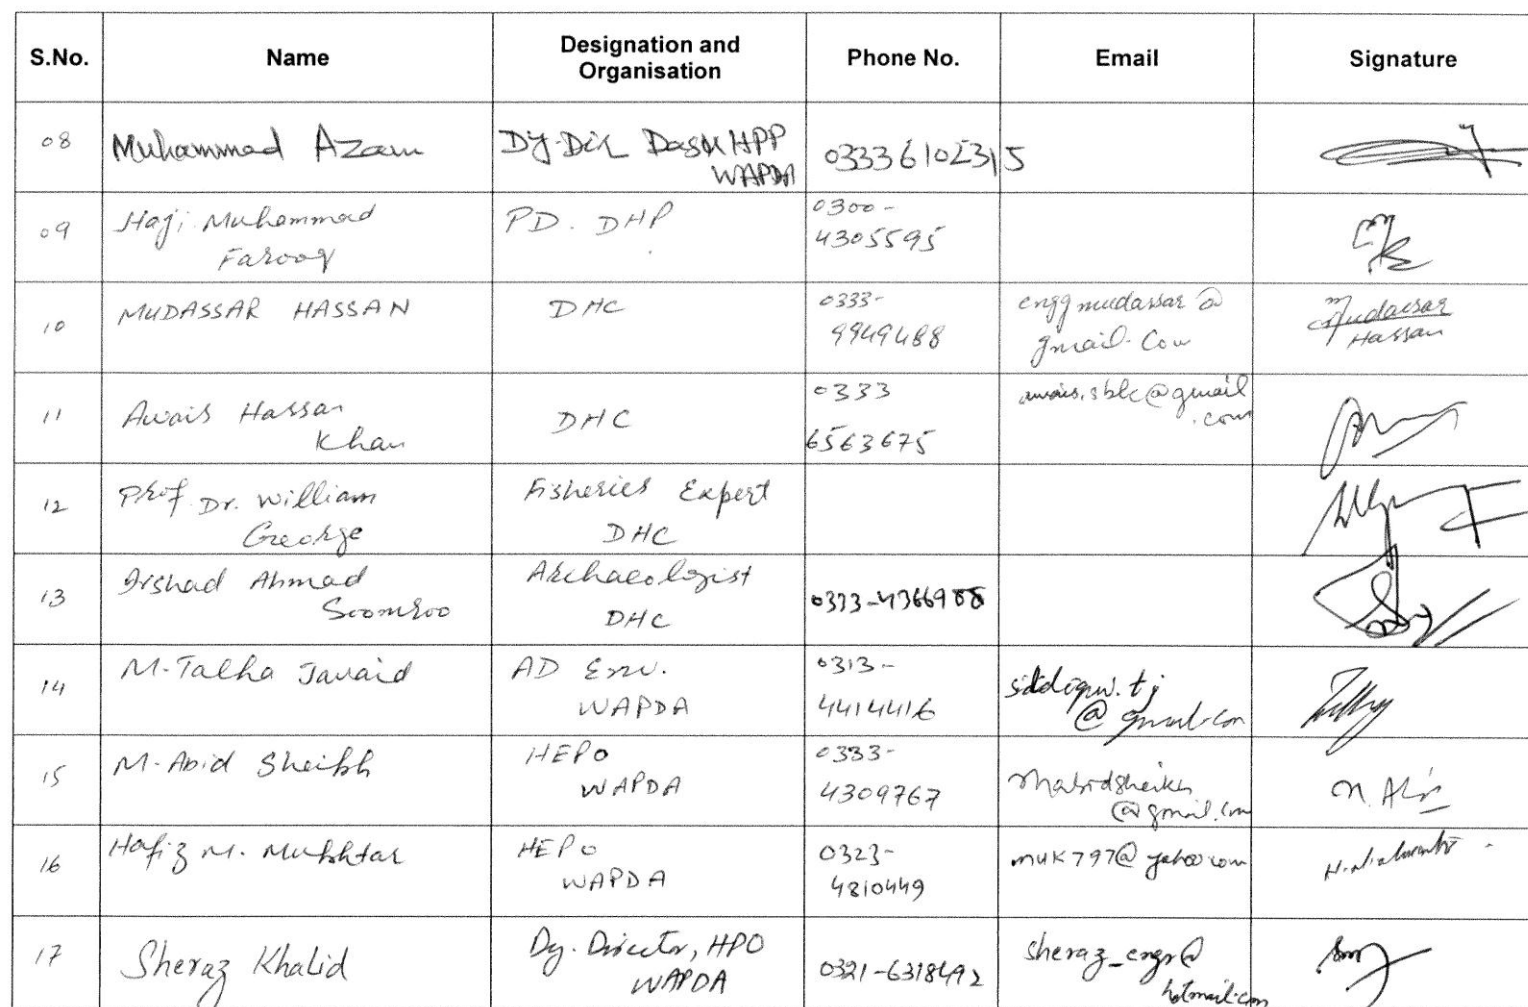 S.No. Name Designation and Organisation Phone No. Email Signature
08 Muhammad Azam Dy-Dir Dasu HPP
WAPDA 03336102315
09 Haji Muhammad
Farooq PD. DHP 0300-
4305595
10 MUDASSAR HASSAN DHC 0333-
9949488 enggmudassar@
gmail.Com Mudassar
Hassan
11 Awais Hassan
Khan DHC 0333
6563675 awais.sblc@gmail
.com
12 Prof Dr. William
George Fisheries Expert
DHC
13 Irshad Ahmad
Soomroo Archaeologist
DHC
14 M-Talha Javaid AD Env.
WAPDA 0313-
4414416 siddiqui.tj
@gmail.com
15 M-Abid Sheikh HEPO
WAPDA 0333-
4309767 mabidsheikh
@gmail.com
16 Hafiz M. Mukhtar HEPO
WAPDA 0323-
4810449 muk797@yahoo.com
17 Sheraz Khalid Dy. Director, HPO
WAPDA 0321-6318492 sheraz_engr@
hotmail.com